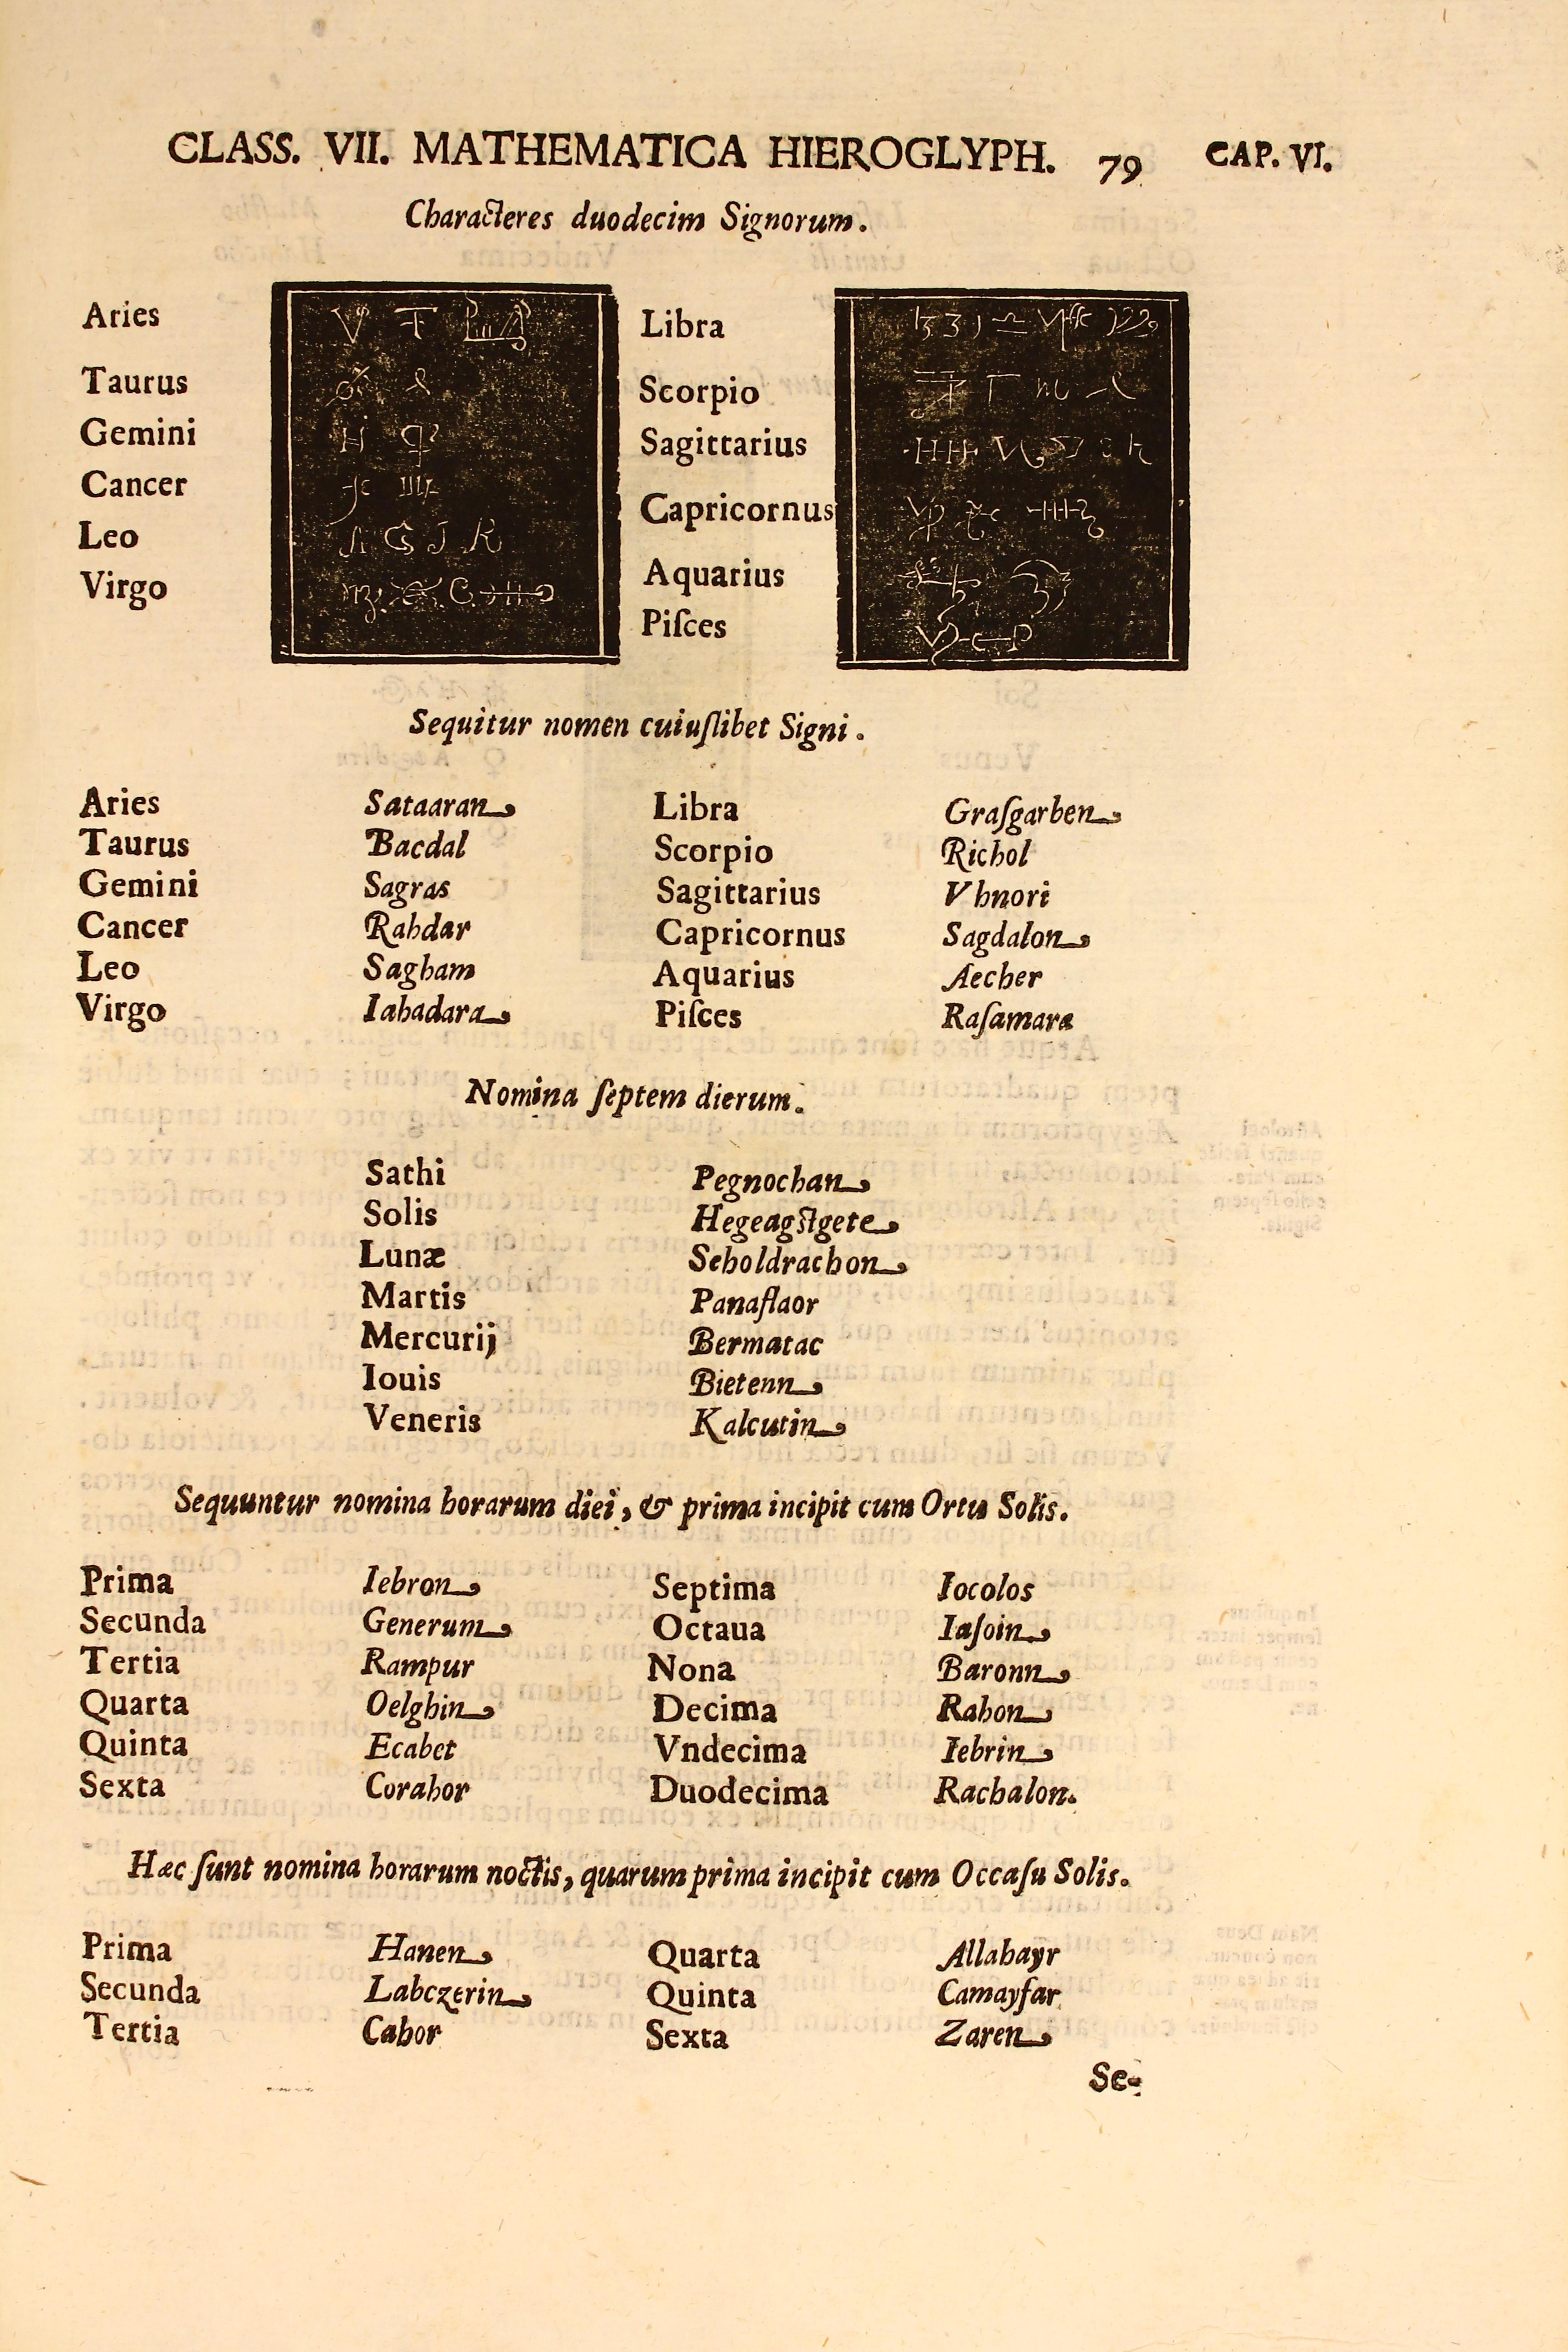 CLASS. VII. MATHEMATICA HIEROGLYPH. 79 CAP. VI.
Characteres duodecim Signorum.
Aries Libra
Taurus Scorpio
Gemini Sagittarius
Cancer Capricornus
Leo Aquarius
Virgo Piſces
Sequitur nomen cuiuſlibet Signi.
Aries Sataaran Libra Graſgarben
Taurus Bacdal Scorpio Richol
Gemini Sagras Sagittarius Vhnori
Cancer Rahdar Capricornus Sagdalon
Leo Sagham Aquarius Aecher
Virgo Iahadara Piſces Raſamara
Nomina ſeptem dierum.
Sathi Pegnochan
Solis Hegeagſtgete
Lunæ Scholdrachon
Martis Panaflaor
Mercurij Bermatac
Iouis Bietenn
Veneris Kalcutin
Sequuntur nomina horarum diei, & prima incipit cum Ortu Solis.
Prima Iebron Septima Iocolos
Secunda Generum Octaua Iaſoin
Tertia Rampur Nona Baronn
Quarta Oelghin Decima Rahon
Quinta Ecabet Vndecima Iebrin
Sexta Corahor Duodecima Rachalon.
Hæc ſunt nomina horarum noctis, quarum prima incipit cum Occaſu Solis.
Prima Hanen Quarta Allahayr
Secunda Labczerin Quinta Camayfar
Tertia Cahor Sexta Zaren
Se-